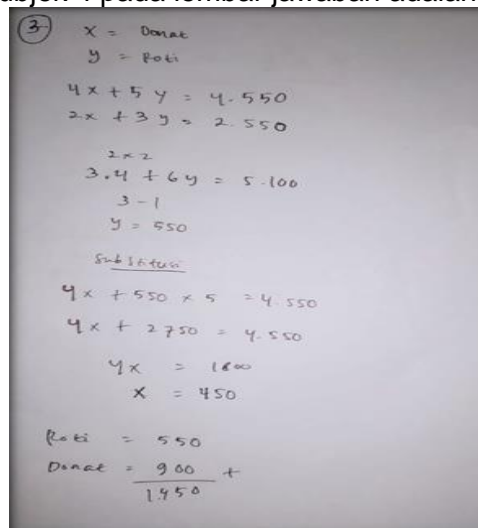 ③ x = Donat
y = Roti
4x + 5y = 4.550
2x + 3y = 2.550
2 x 2
3.4 + 6y = 5.100
3 - 1
y = 550
Substitusi
4x + 550 x 5 = 4.550
4x + 2750 = 4.550
4x = 1800
x = 450
Roti = 550
Donat = 900 +
1.450